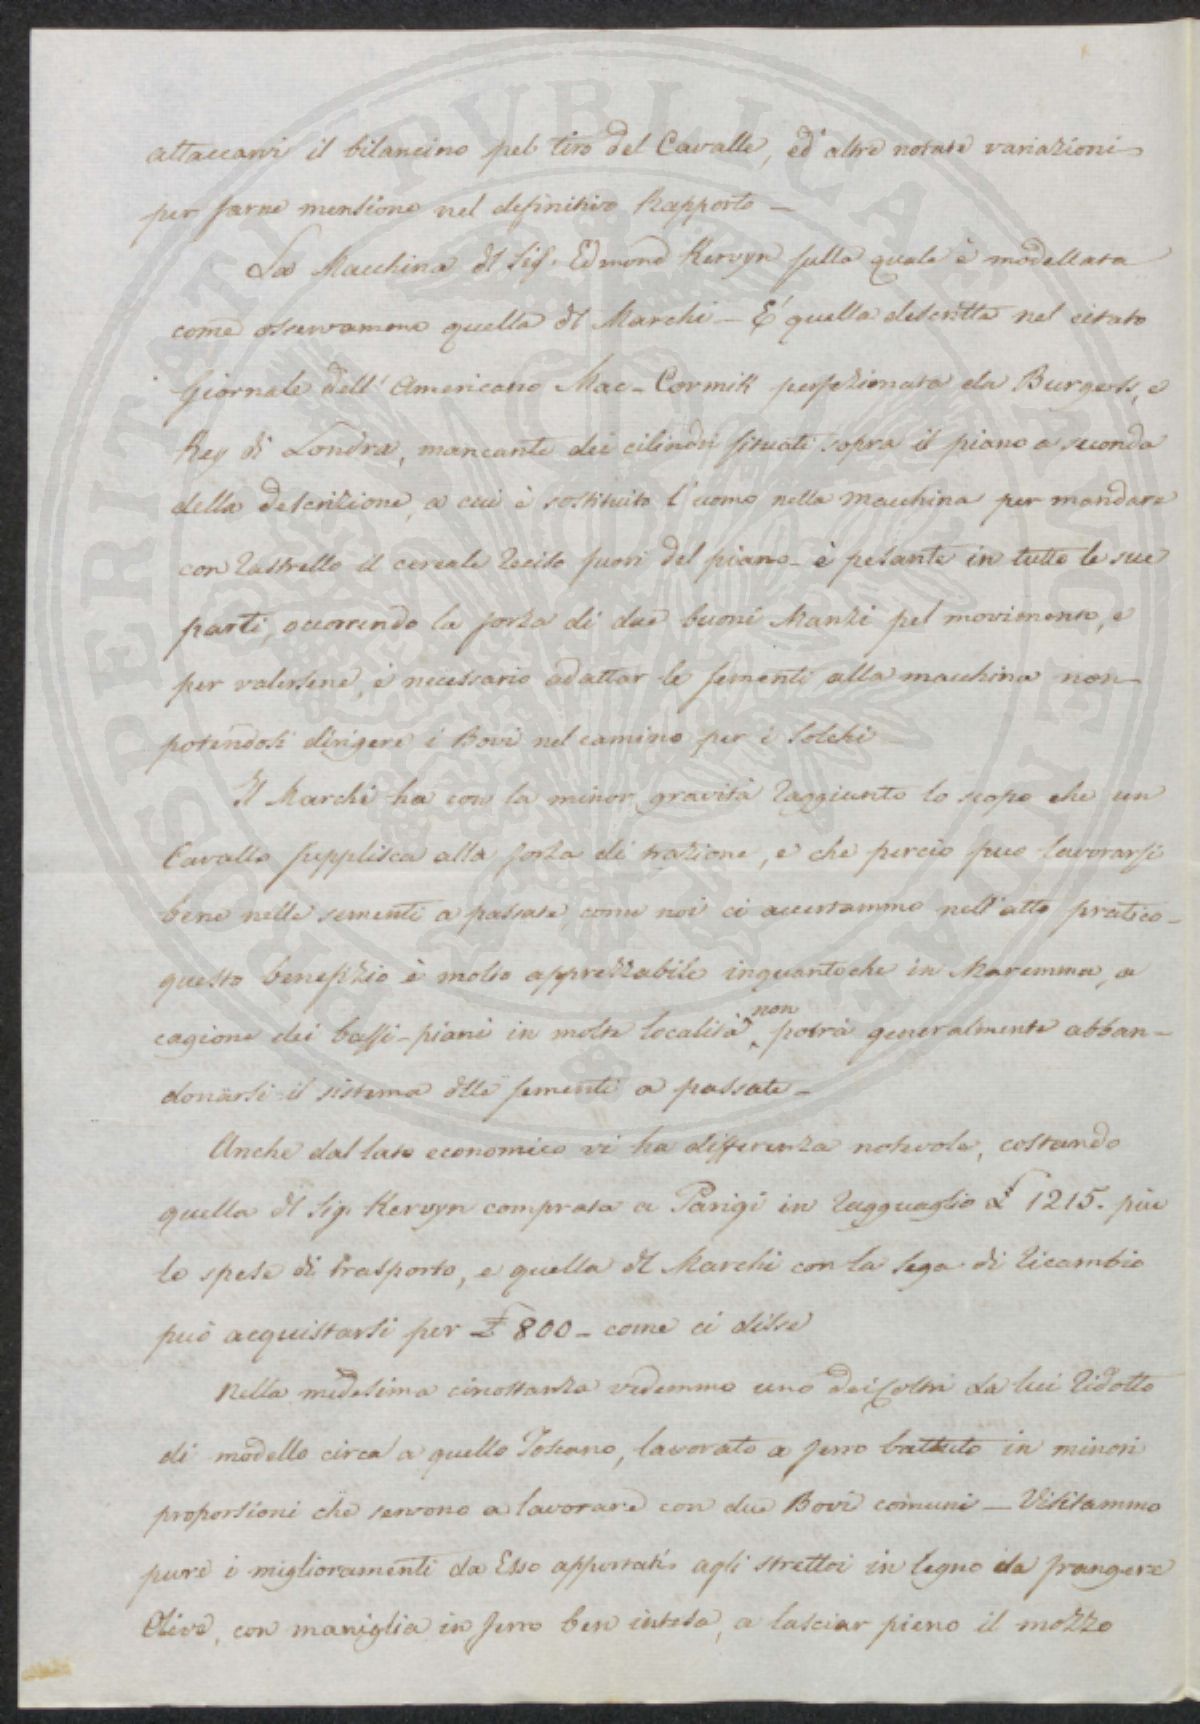 attaccarvi il bilancino pel tiro del Cavallo, ed altre notate variazioni
per farne menzione nel definitivo Rapporto –
La Macchina dl Sig. Edmond Kervyn sulla quale è modellata
come osservammo quella dl Marchi – E' quella descritta nel citato
Giornale dell' Americano Mac-Cormik perfezionata da Burgess, e
Key di Londra, mancante dei cilindri situati sopra il piano a seconda
della descrizione, a cui è sostituito l'uomo nella macchina per mandare
con rastrello il cereale reciso fuori del piano – è pesante in tutte le sue
parti, occorrendo la forza di due buoni Manzi pel movimento, e
per valersene, è necessario adattar le sementi alla macchina non
potendosi dirigere i Bovi nel camino per i Solchi –
Il Marchi ha con la minor gravità raggiunto lo scopo che un
Cavallo supplisca alla forza di trazione, e che perciò può lavorarsi
bene nelle sementi a passate, come noi ci accertammo nell'atto pratico –
questo benefizio è molto apprezzabile inquantoche in Maremma, a
cagione dei bassi-piani in molte località non potrà generalmente abban-
donarsi il sistema dlle sementi a passate –
Anche dal lato economico vi ha differenza notevole, costando
quella dl Sig. Kervyn comprata a Parigi in ragguaglio £ 1215. più
le spese di trasporto, e quella dl Marchi con la sega di ricambio
può acquistarsi per £ 800 – come ci disse
Nella medesima circostanza vedemmo uno dei Coltri da lui ridotto
di modello circa a quello Toscano, lavorato a ferro battuto in minori
proporsioni che servono a lavorare con due Bovi comuni – Visitammo
pure i miglioramenti da Esso apportati agli strettoi in legno da frangere
Olive, con maniglia in ferro ben intesa, a lasciar pieno il mozzo
PROSPERITATI PUBLICAE AUGENDAE